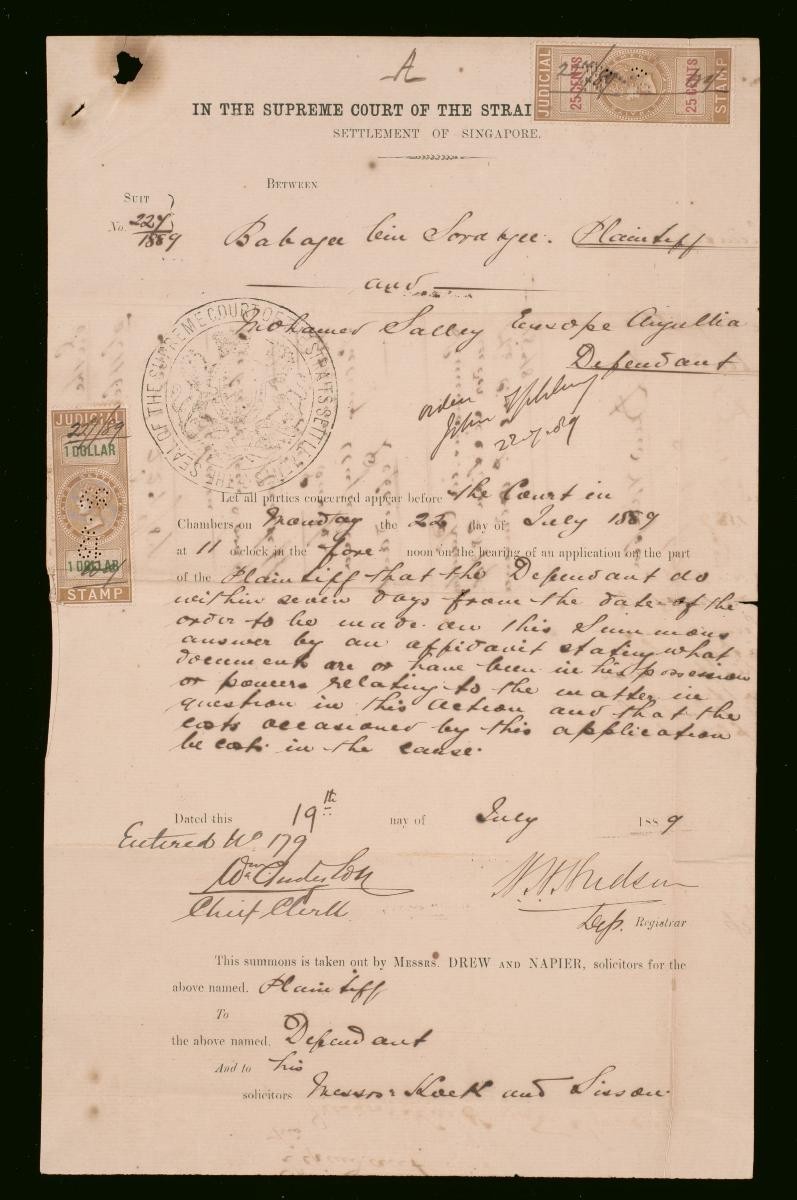 A
JUDICIAL 25 CENTS 25 CENTS STAMP
IN THE SUPREME COURT OF THE STRAI
SETTLEMENT OF SINGAPORE.
BETWEEN
SUIT
No. 227
1889
Babajee bin Sorabjee. Plaintiff
and
Mohamed Salley Eusope Angullia
Defendant
THE SEAL OF THE SUPREME COURT OF THE STRAITS SETTLEMENTS
order
John
22-7-89
JUDICIAL
22/7/89
1 DOLLAR
1 DOLLAR
STAMP
Let all parties concerned appear before the Court in
Chambers on Monday the 22 day of July 1889
at 11 o'clock in the fore noon on the hearing of an application on the part
of the Plaintiff that the Defendant do
within seven days from the date of the
order to be made on this Summons
answer by an affidavit stating what
documents are or have been in his possession
or powers relating to the matter in
question in this action and that the
costs occasioned by this application
be costs in the cause.
Dated this 19th day of July 1889
Entered No 179
Wm Anderson
Chief Clerk
Hudson
Dep. Registrar
This summons is taken out by MESSRS. DREW AND NAPIER, solicitors for the
above named. Plaintiff
To
the above named. Defendant
And to his
solicitors Messrs Koek and Sisson.